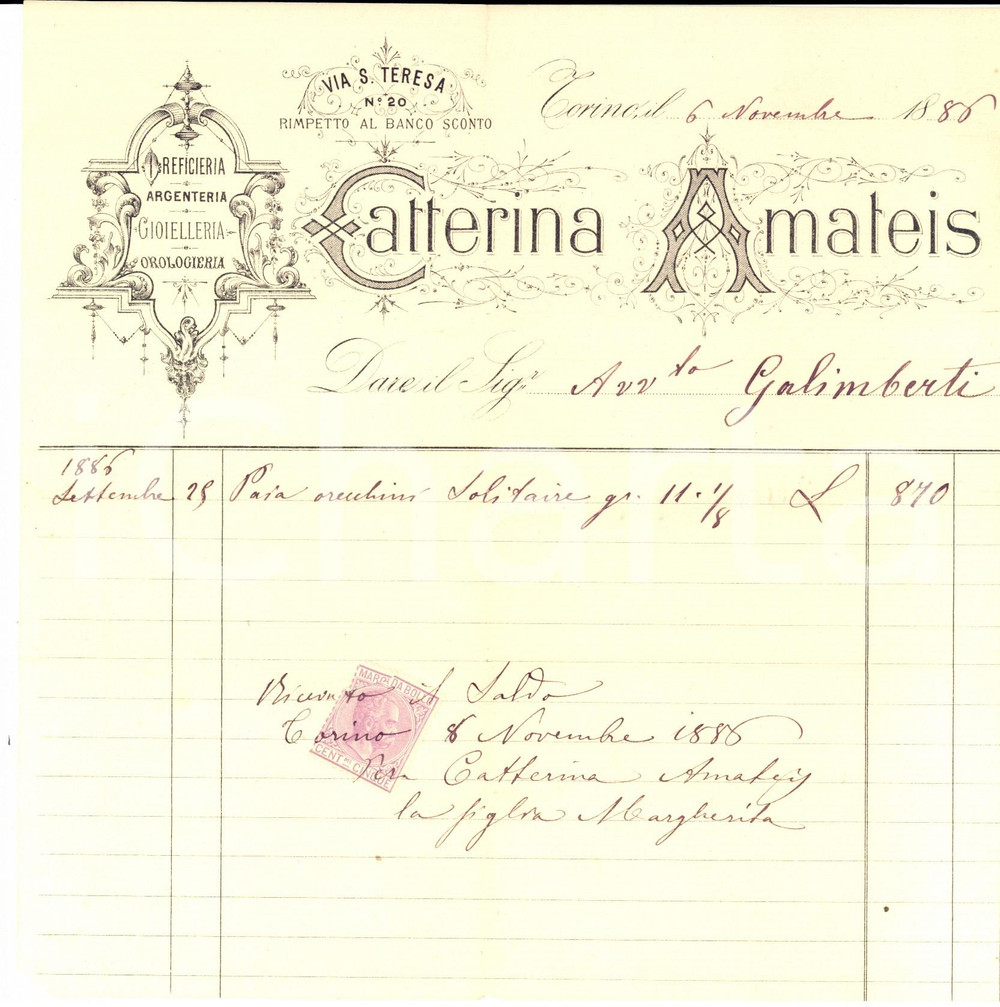 VIA S. TERESA
Nº 20
RIMPETTO AL BANCO SCONTO
Torino, il 6 Novembre 1886
OREFICIERIA
ARGENTERIA
GIOIELLERIA
OROLOGIERIA
Catterina Amateis
Dare il Sigr. Avvto Galimberti
1886
Settembre 25 Paia orecchini Solitaire gr. 11. 1/8 L 870
MARCA DA BOLLO
CENT.MI CINQUE
Ricevuto il Saldo
Torino 8 Novembre 1886
Per Catterina Amateis
la figlia Margherita